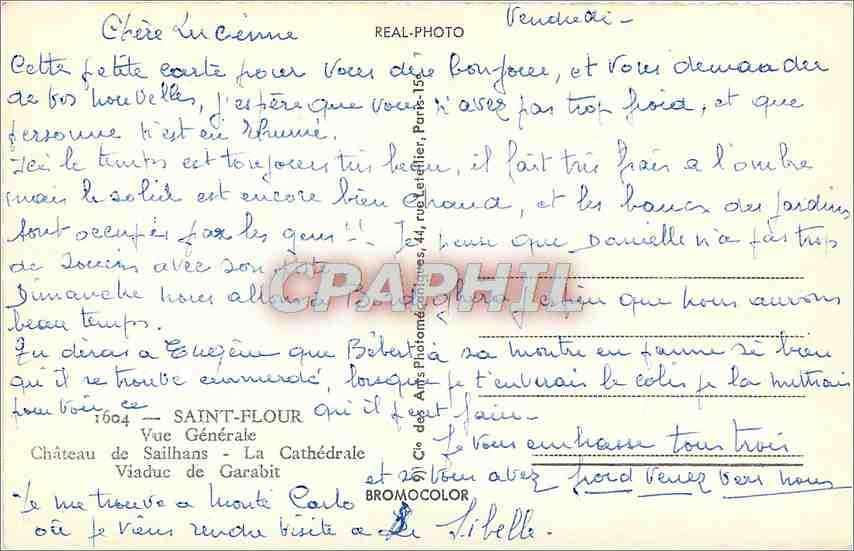 Vendredi -
Chère Lucienne
REAL-PHOTO
Cette petite carte pour vous dire bonjour, et vous demander
de vos nouvelles, j'espère que vous n'avez pas trop froid, et que
personne n'est enrhumé.
Ici le temps est toujours très beau, il fait très frais a l'ombre
mais le soleil est encore bien chaud, et les bancs des jardins
sont occupés par les gens!!! Je pense que Danielle n'a pas trop
de soucis avec son
Dimanche nous allons à Bordighera, j'espère que nous aurons
beau temps.
Tu diras a Eugène que Bébert à sa montre en panne si bien
qu'il se trouve emmerdé, lorsque je t'enverais le colis je la mettrais
pour voir ce qu'il peut faire -
Je vous embrasse tous trois
et si vous avez froid venez vers nous
Je me trouve a Monté Carlo
où je viens rendre visite a Sibelle -
1604 — SAINT-FLOUR
Vue Générale
Château de Sailhans - La Cathédrale
Viaduc de Garabit
Cie des Arts Photomécaniques, 44, rue Letellier, Paris-15e
BROMOCOLOR
CPARPHIL